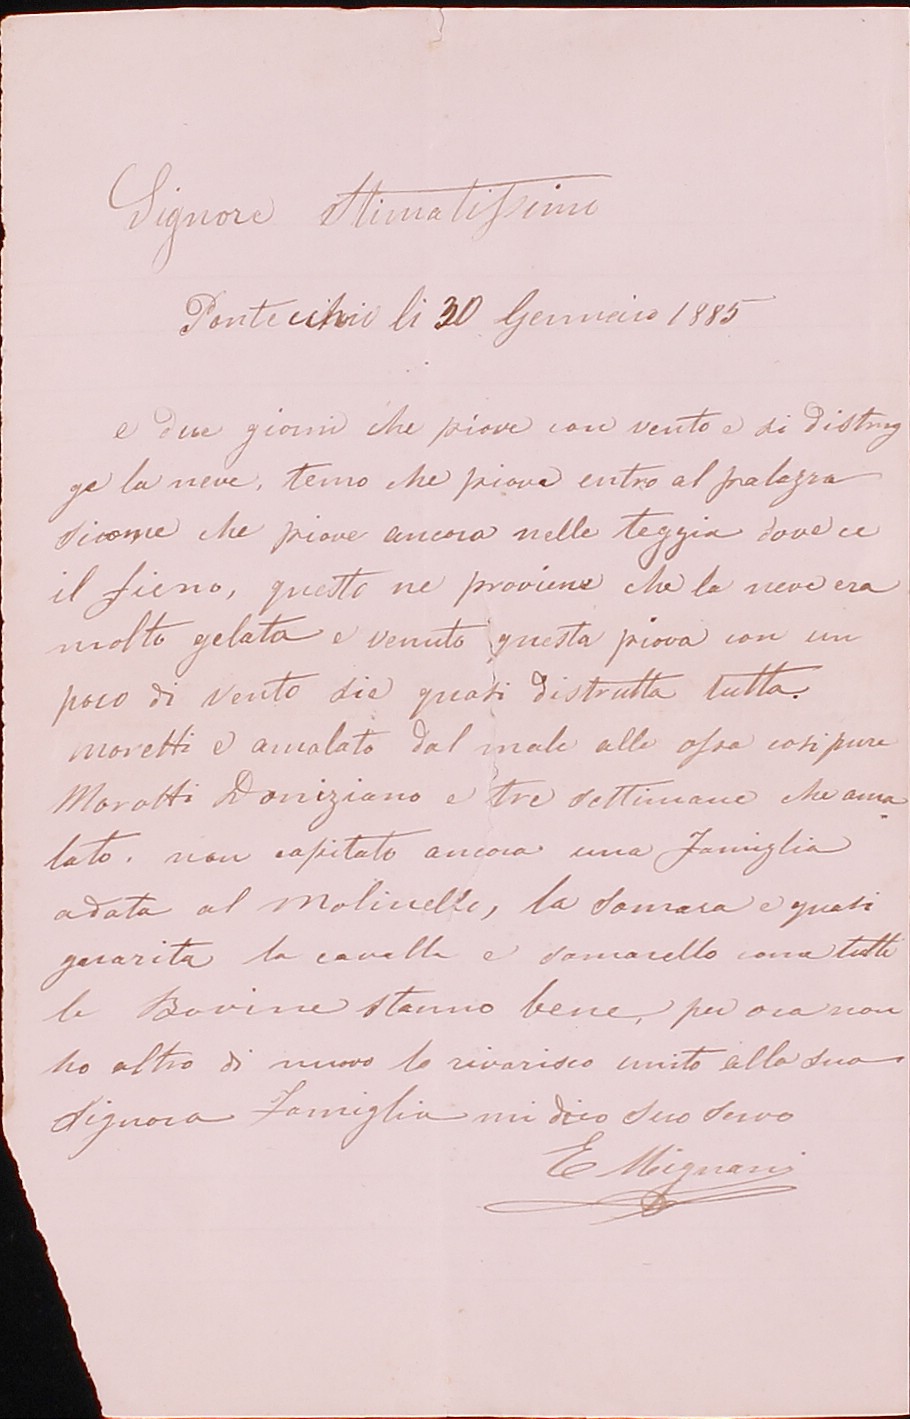 Signore Stimatissimo
Pontecchio li 30 Gennaio 1885
e due giorni che piove con vento e si distrug
ge la neve, temo che piova entro al palazza
sicome che piove ancora nelle teggia dove ce
il fieno, questo ne proviene che la neve era
molto gelata e venuto questa piova con un
poco di vento sie quasi distrutta tutta.
Moretti e amalato dal male alle ossa cosi pure
Marotti Doniziano e tre settimane che ama
lato. non capitato ancora una Famiglia
adata al Molinello, la Somara e quasi
guarita la cavalla e somarello come tutti
le Bovine stanno bene, per ora non
ho altro di nuovo lo riverisco unito alla sua
Signora Famiglia mi dico suo servo
E Mignani